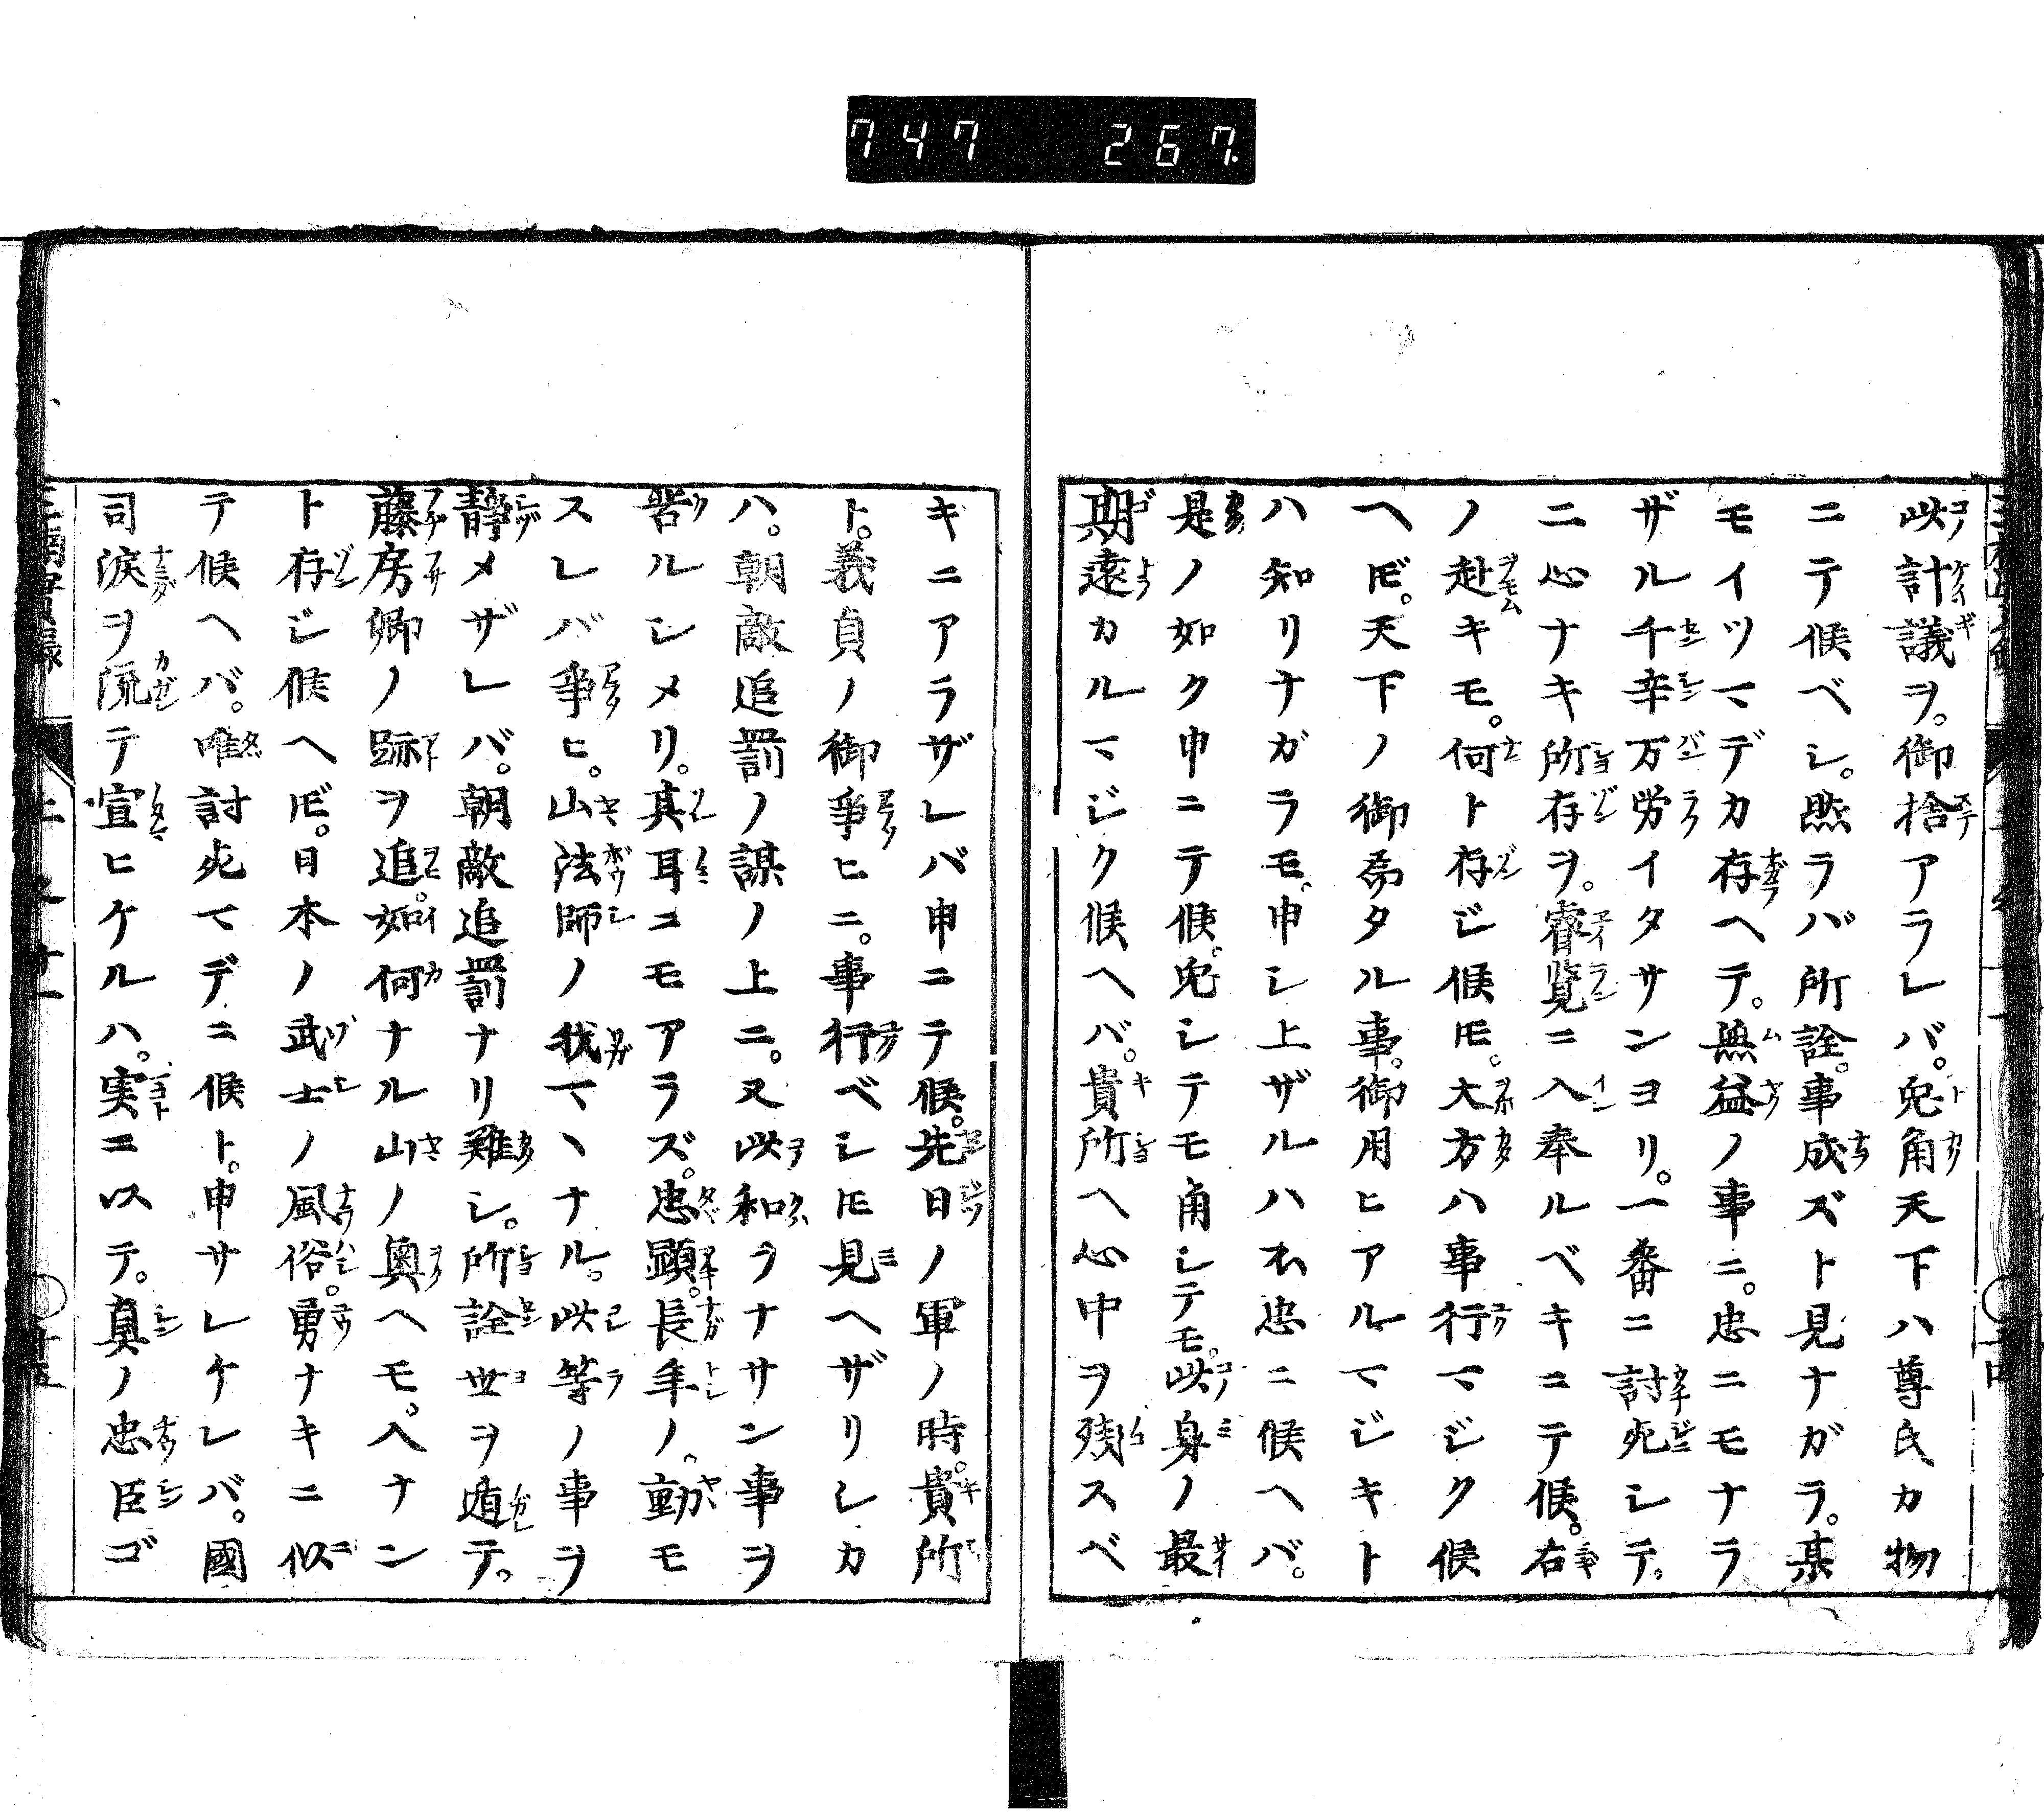 747 267.
此計議ヲ。御捨アラレバ。兎角天下ハ尊氏カ物
ニテ候ベシ。然ラバ所詮。事成ズト見ナガラ。某
モイツマデカ存ヘテ。無益ノ事ニ。忠ニモナラ
ザル千辛万労イタサンヨリ。一番ニ討死シテ。
二心ナキ所存ヲ。睿覧ニ入奉ルベキニテ候。右
ノ赴キモ。何ト存ジ候𪜈。大方ハ事行マジク候
ヘ𪜈。天下ノ御為タル事。御用ヒアルマジキト
ハ知リナガラモ、申シ上ザルハ不忠ニ候ヘバ。
是ノ如ク申ニテ候。兎シテモ角シテモ。此身ノ最
期遠カルマジク候ヘバ。貴所ヘ心中ヲ残スベ
キニアラザレバ申ニテ候。先日ノ軍ノ時。貴所
ト。義貞ノ御爭ヒニ。事行ベシ𪜈見ヘザリシカ
ハ。朝敵追罰ノ謀ノ上ニ。又此和ラナサン事ヲ
苦ルシメリ。其耳ニモアラズ。忠顕。長年ノ。動モ
スレバ爭ヒ。山法師ノ我マヽナル。此等ノ事ヲ
靜メザレバ。朝敵追罰ナリ難シ。所詮世ヲ遁テ。
藤房卿ノ跡ヲ追。如何ナル山ノ奥ヘモ。入ナン
ト存ジ候ヘ𪜈。日本ノ武士ノ風俗。勇ナキニ似
テ候ヘバ。唯討死マデニ候ト。申サレケレバ。國
司涙ヲ流テ宣ヒケルハ。実ニ以テ。真ノ忠臣ゴ